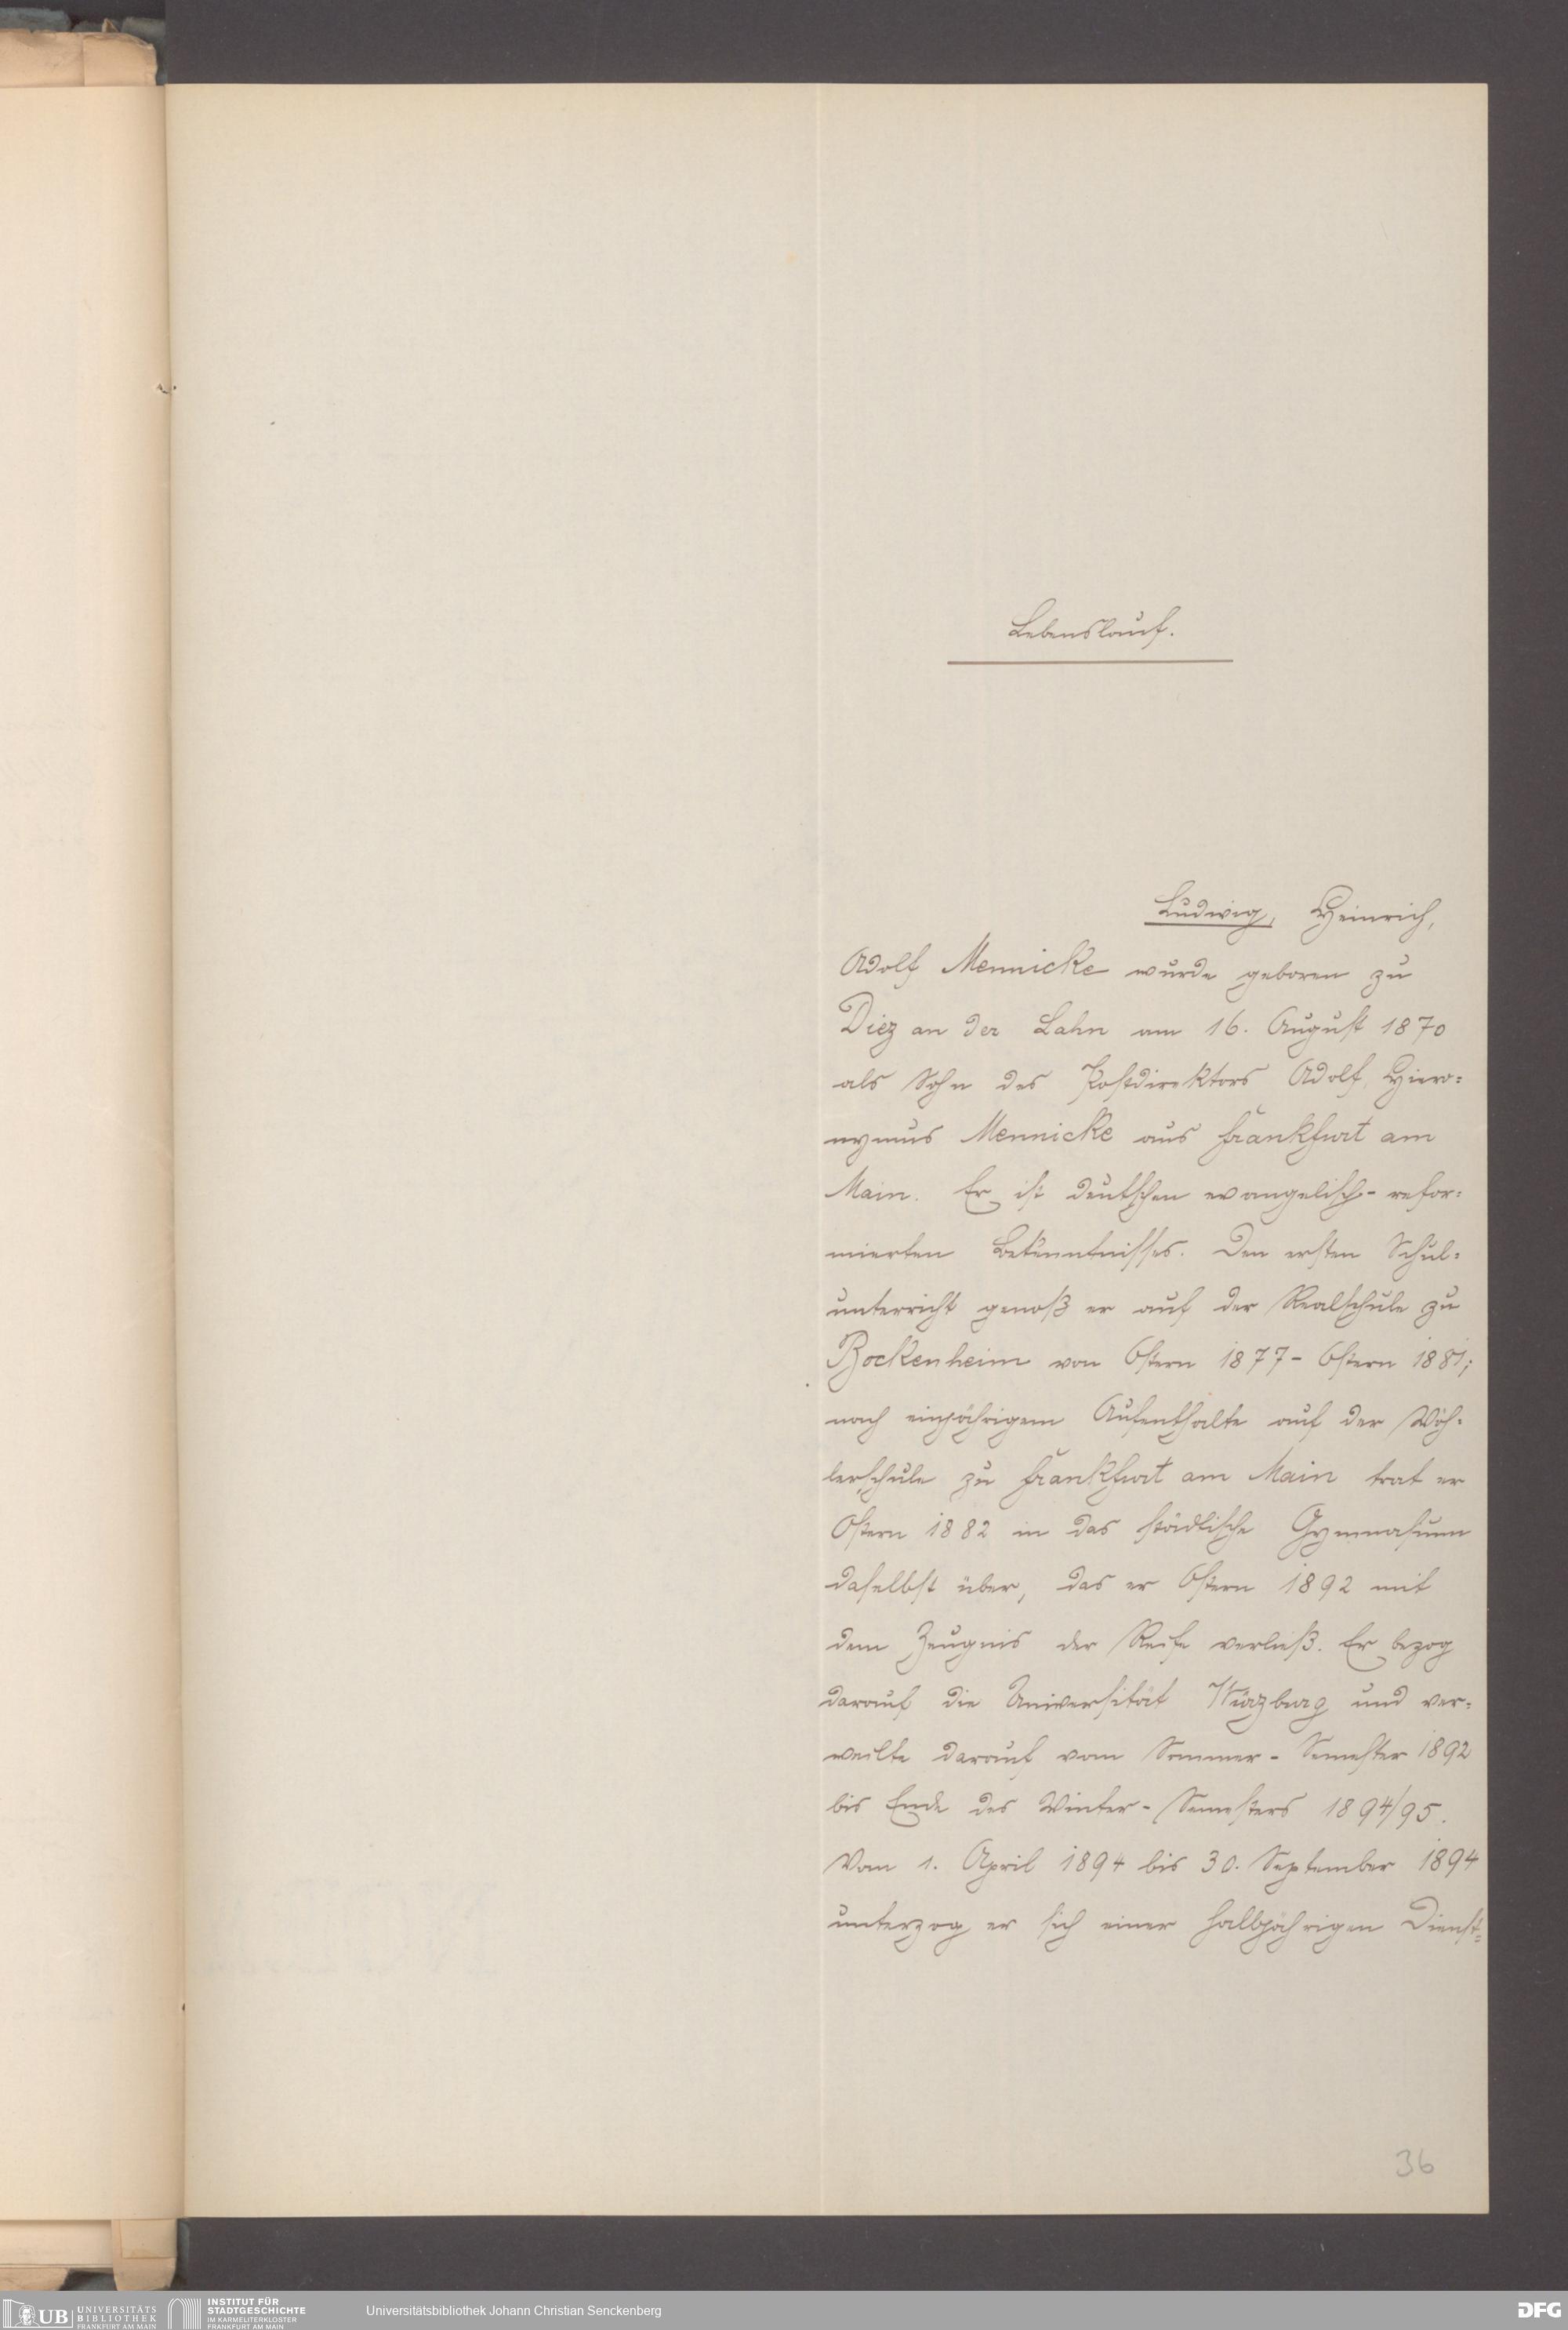 Lebenslauf.
Ludwig, Heinrich,
Adolf Mennicke wurde geboren zu
Diez an der Lahn am 16. August 1870
als Sohn des Postdirektors Adolf, Hiero=
nymus Mennicke aus Frankfurt am
Main. Er ist deutschen evangelisch-refor=
mierten Bekenntnisses. Den ersten Schul=
unterricht genoß er auf der Realschule zu
Bockenheim von Ostern 1877- Ostern 1881;
nach einjährigem Aufenthalte auf der Wöh=
lerschule zu Frankfurt am Main trat er
Ostern 1882 in das städtische Gymnasium
daselbst über, das er Ostern 1892 mit
dem Zeugnis der Reife verließ. Er bezog
darauf die Universität Würzburg und ver=
weilte darauf vom Sommer-Semester 1892
bis Ende des Winter-Semesters 1894/95.
Vom 1. April 1894 bis 30. September 1894
unterzog er sich einer halbjährigen Dienst=
36
UB UNIVERSITÄTS
BIBLIOTHEK
FRANKFURT AM MAIN
INSTITUT FÜR
STADTGESCHICHTE
IM KARMELITERKLOSTER
FRANKFURT AM MAIN
Universitätsbibliothek Johann Christian Senckenberg
DFG